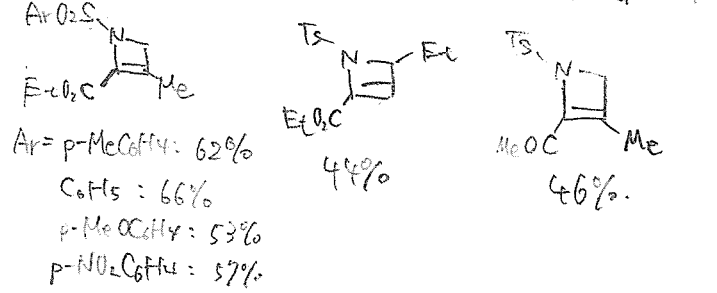 ArO2S
N
EtO2C
Me
Ar= p-MeC6H4: 62%
C6H5: 66%
p-MeOC6H4: 53%
p-NO2C6H4: 57%
Ts
N
Et
EtO2C
44%
Ts
N
MeOC
Me
46%.